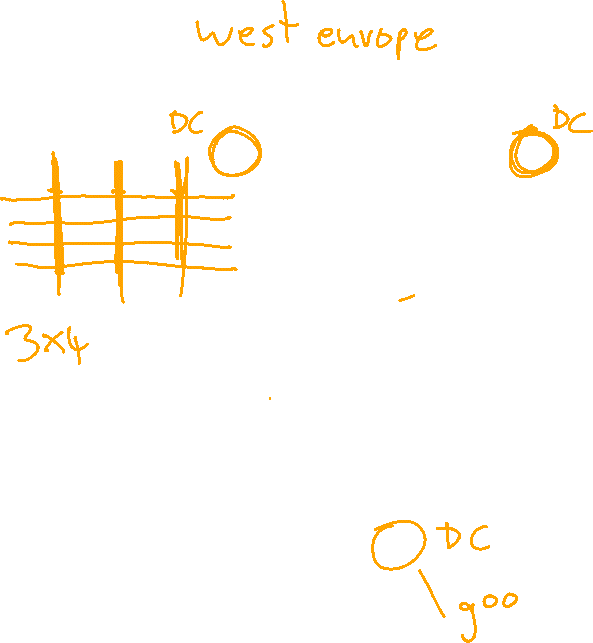 west europe
DC
DC
3x4
DC
goo